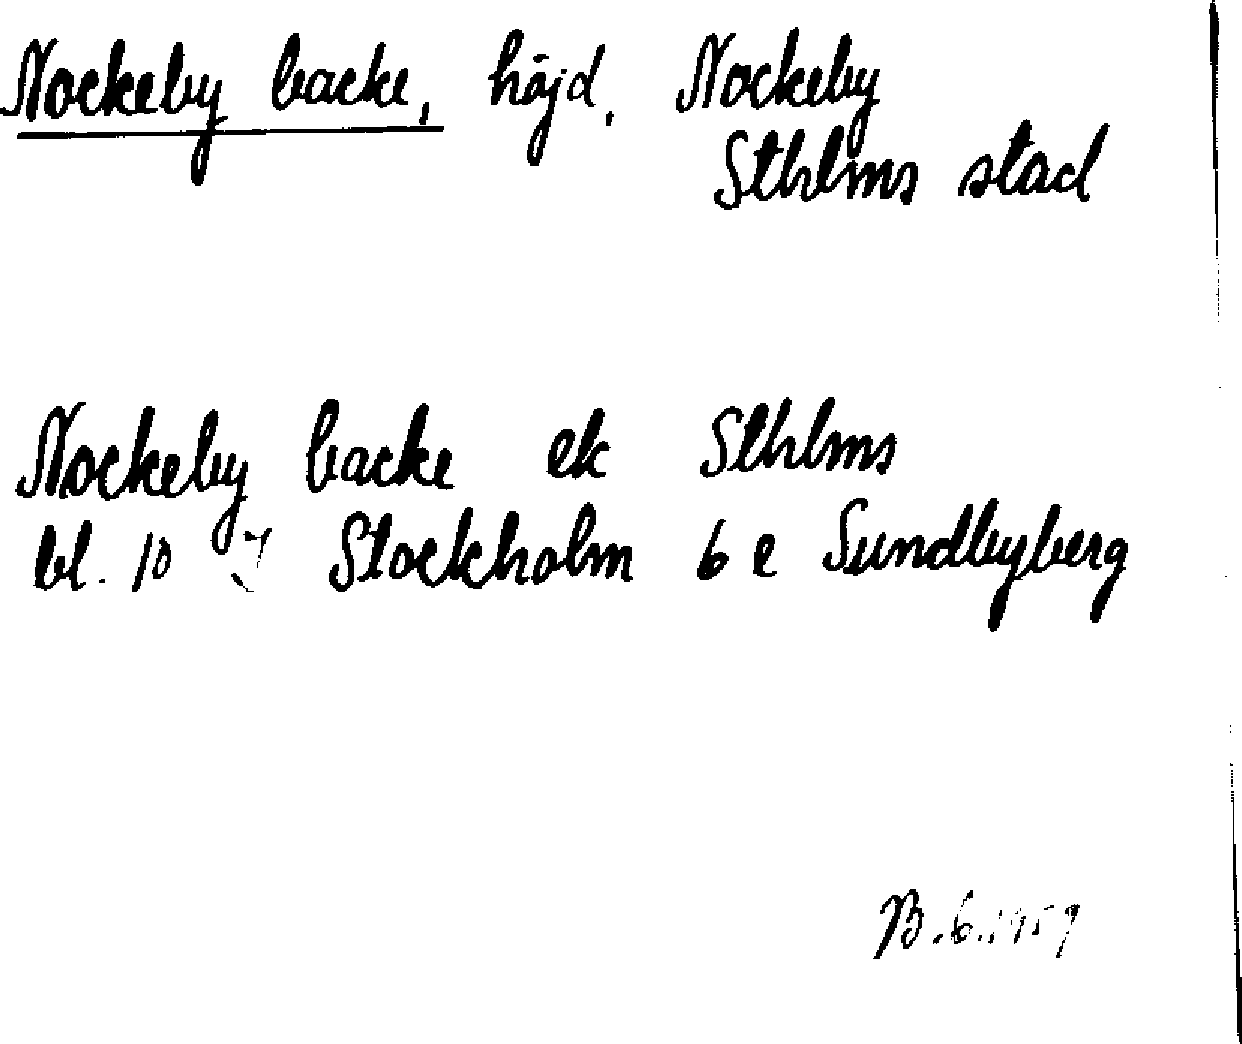 Nockeby backe, höjd, Nockeby
Sthlms stad
Nockeby backe ek Sthlms
bl. 10 J Stockholm 6 e Sundbyberg
B.6.1959